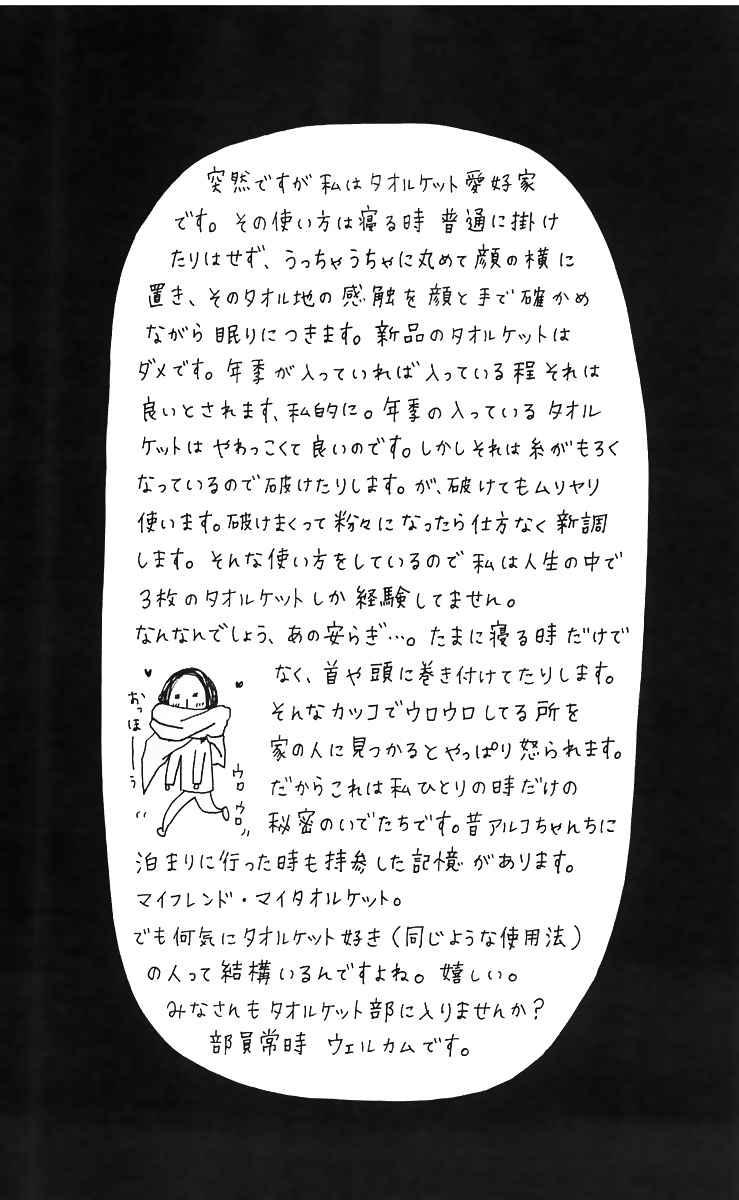 突然ですが私はタオルケット愛好家
です。その使い方は寝る時普通に掛け
たりはせず、うっちゃうちゃに丸めて顔の横に
置き、そのタオル地の感触を顔と手で確かめ
ながら眠りにつきます。新品のタオルケットは
ダメです。年季が入っていれば入っている程それは
良いとされます、私的に。年季の入っているタオル
ケットはやわっこくて良いのです。しかしそれは糸がもろく
なっているので破けたりします。が、破けてもムリヤリ
使います。破けまくって粉々になったら仕方なく新調
します。そんな使い方をしているので私は人生の中で
3枚のタオルケットしか経験してません。
なんなんでしょう、あの安らぎ…。たまに寝る時だけで
なく、首や頭に巻き付けてたりします。
そんなカッコでウロウロしてる所を
家の人に見つかるとやっぱり怒られます。
だからこれは私ひとりの時だけの
秘密のいでたちです。昔アルコちゃんちに
泊まりに行った時も持参した記憶があります。
マイフレンド・マイタオルケット。
でも何気にタオルケット好き(同じような使用法)
の人って結構いるんですよね。嬉しい。
みなさんもタオルケット部に入りませんか?
部員常時 ウェルカムです。
おっほーう
ウロ
ウロ